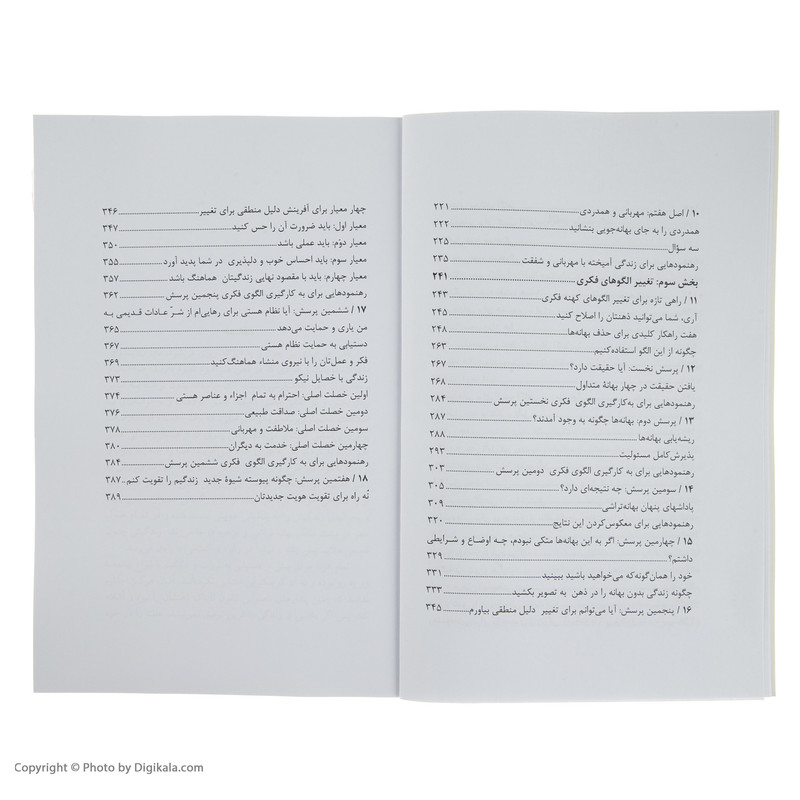 ۱۰ / اصل هفتم: مهربانی و همدردی ........ ۲۲۱
همدردی را به جای بهانه‌جویی بنشانید ........ ۲۲۲
سه سؤال ........ ۲۲۵
رهنمودهایی برای زندگی آمیخته با مهربانی و شفقت ........ ۲۳۵
بخش سوم: تغییر الگوهای فکری ........ ۲۴۱
۱۱ / راهی تازه برای تغییر الگوهای کهنه فکری ........ ۲۴۳
آری، شما می‌توانید ذهنتان را اصلاح کنید ........ ۲۴۵
هفت راهکار کلیدی برای حذف بهانه‌ها ........ ۲۴۸
چگونه از این الگو استفاده‌کنیم ........ ۲۶۳
۱۲ / پرسش نخست: آیا حقیقت دارد؟ ........ ۲۶۷
یافتن حقیقت در چهار بهانهٔ متداول ........ ۲۶۸
رهنمودهایی برای به‌کارگیری الگوی فکری نخستین پرسش ........ ۲۸۴
۱۳ / پرسش دوم: بهانه‌ها چگونه به وجود آمدند؟ ........ ۲۸۷
ریشه‌یابی بهانه‌ها ........ ۲۸۸
پذیرش‌کامل مسئولیت ........ ۲۹۳
رهنمودهایی برای به کارگیری الگوی فکری دومین پرسش ........ ۳۰۳
۱۴ / سومین پرسش: چه نتیجه‌ای دارد؟ ........ ۳۰۵
پاداشهای پنهان بهانه‌تراشی ........ ۳۰۹
رهنمودهایی برای معکوس‌کردن این نتایج ........ ۳۲۰
۱۵ / چهارمین پرسش: اگر به این بهانه‌ها متکی نبودم، چـه اوضـاع و شـرایطی
داشتم؟ ........ ۳۲۹
خود را همان‌گونه‌که می‌خواهید باشید ببینید ........ ۳۳۱
چگونه زندگی بدون بهانه را در ذهن به تصویر بکشید ........ ۳۳۳
۱۶ / پنجمین پرسش: آیا می‌توانم برای تغییر دلیل منطقی بیاورم ........ ۳۴۵
چهار معیار برای آفرینش دلیل منطقی برای تغییر ........ ۳۴۶
معیار اول: باید ضرورت آن را حس کنید ........ ۳۴۷
معیار دوّم: باید عملی باشد ........ ۳۵۰
معیار سوم: باید احساس خوب و دلپذیری در شما پدید آورد ........ ۳۵۵
معیار چهارم: باید با مقصود نهایی زندگیتان هماهنگ باشد ........ ۳۵۷
رهنمودهایی برای به کارگیری الگوی فکری پنجمین پرسش ........ ۳۶۲
۱۷ / ششمین پرسش: آیا نظام هستی برای رهایی‌ام از شـرّ عـادات قـدیمی بـه
من یاری و حمایت می‌دهد ........ ۳۶۵
دستیابی به حمایت نظام هستی ........ ۳۶۷
فکر و عمل‌تان را با نیروی منشاء هماهنگ‌کنید ........ ۳۶۹
زندگی با خصایل نیکو ........ ۳۷۳
اولین خصلت اصلی: احترام به تمام اجزاء و عناصر هستی ........ ۳۷۴
دومین خصلت اصلی: صداقت طبیعی ........ ۳۷۶
سومین خصلت اصلی: ملاطفت و مهربانی ........ ۳۷۸
چهارمین خصلت اصلی: خدمت به دیگران ........ ۳۸۰
رهنمودهایی برای به کارگیری الگوی فکری ششمین پرسش ........ ۳۸۴
۱۸ / هفتمین پرسش: چگونه پیوسته شیوهٔ جدید زندگیم را تقویت کنم .. ۳۸۷
نُه راه برای تقویت هویت جدیدتان ........ ۳۸۹
Copyright © Photo by Digikala.com